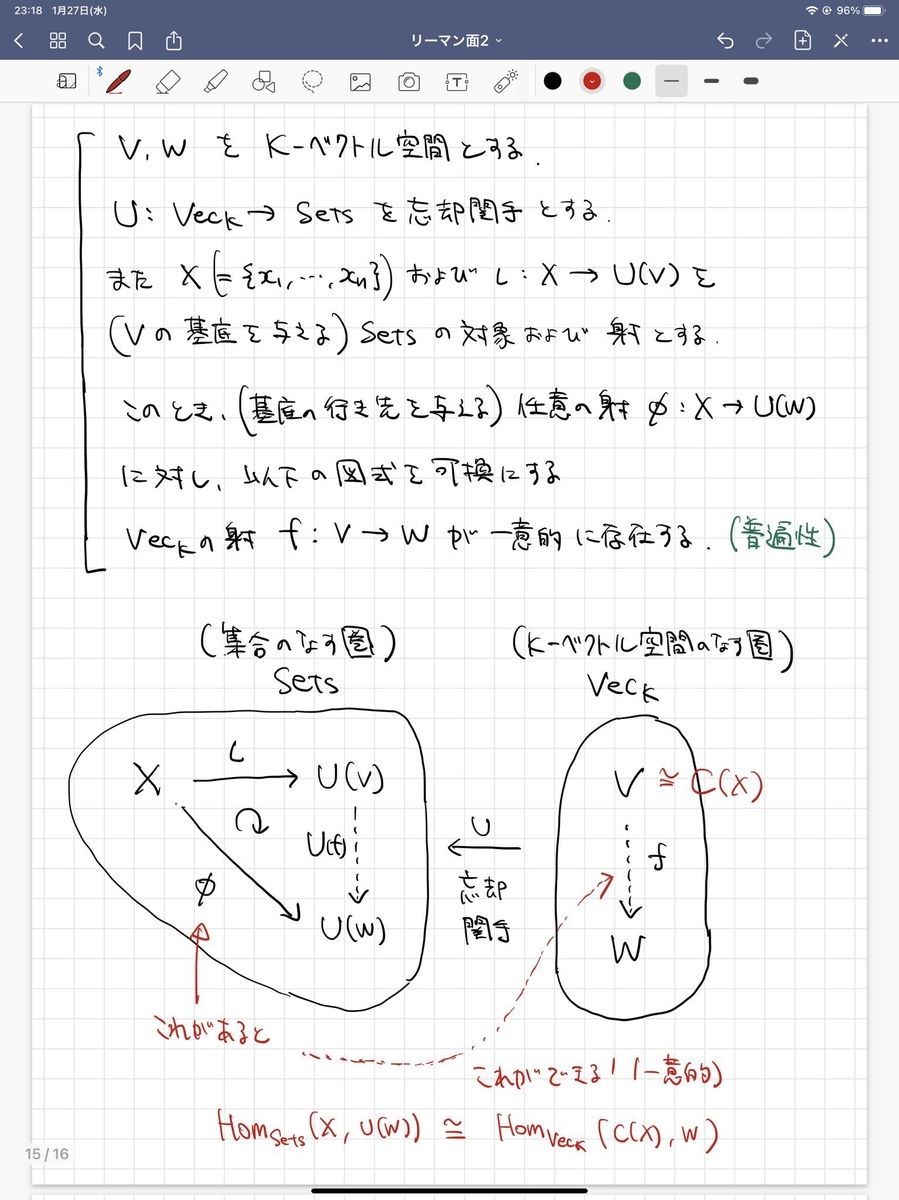 23:18 1月27日(水) 96%
リーマン面2
V, W を K-ベクトル空間とする.
U: VecK → Sets を忘却関手とする.
また X (= {x1, …, xn}) および ι: X → U(V) を
(Vの基底を与える) Sets の対象および射とする.
このとき、(基底の行き先を与える) 任意の射 φ: X → U(W)
に対し、以下の図式を可換にする
VecKの射 f: V → W が一意的に存在する. (普遍性)
(集合のなす圏) (K-ベクトル空間のなす圏)
Sets VecK
X ι U(V) V ≅ C(X)
U
U(f) f
φ 忘却
U(W) 関手 W
これがあると
これができる! (一意的)
HomSets(X, U(W)) ≅ HomVecK(C(X), W)
15 / 16